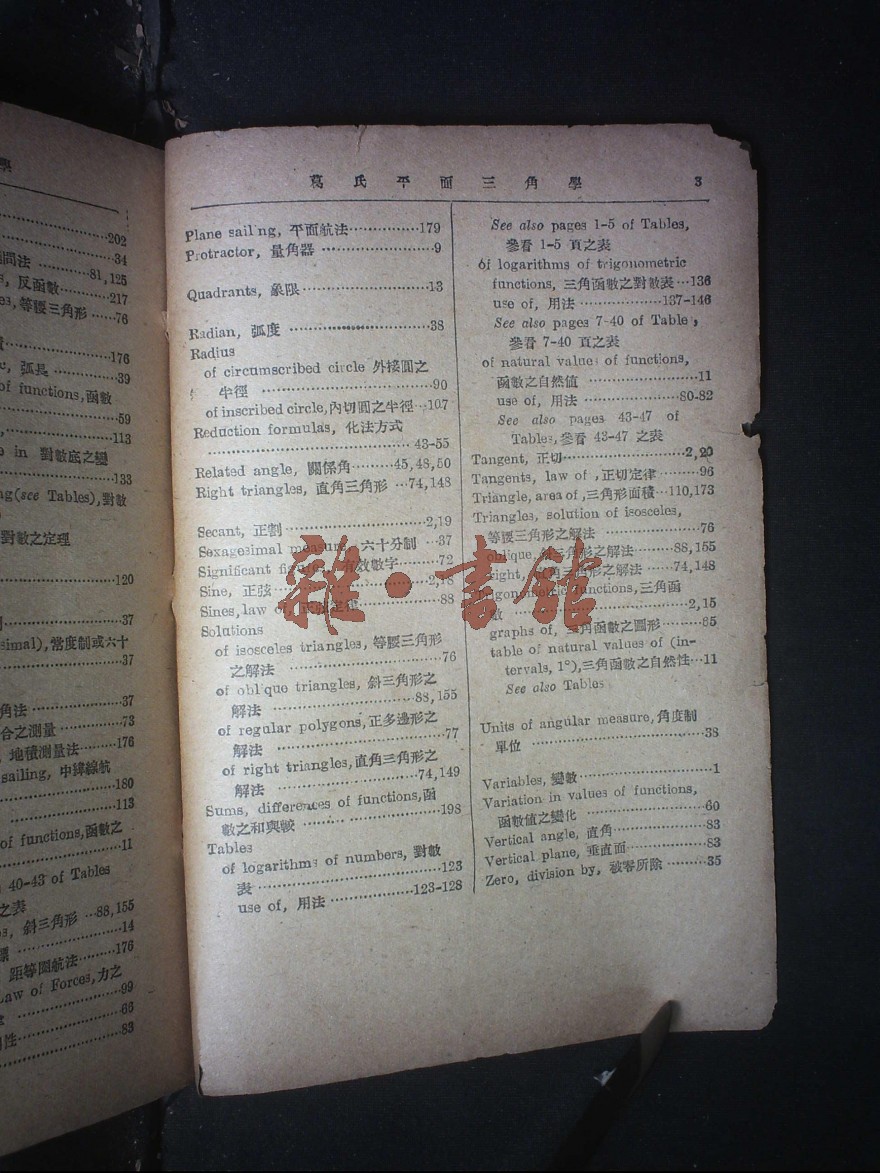 學
202
34
間法 81,125
s, 反函數 217
es,等腰三角形 76
176
c, 弧長 39
of functions,函數
59
113
e in 對數底之變
133
ng(see Tables),對數
對數之定理
120
37
simal),常度制或六十
37
角法 37
合之測量 73
, 地積測量法 176
sailing, 中緯線航
180
113
of functions,函數之
11
40-43 of Tables
之表
s, 斜三角形 88,155
14
距等圈航法 176
Law of Forces,力之
99
66
性 83
葛氏平面三角學 3
Plane sailing, 平面航法 179
Protractor, 量角器 9
Quadrants, 象限 13
Radian, 弧度 38
Radius
of circumscribed circle 外接圓之
半徑 90
of inscribed circle,內切圓之半徑 107
Reduction formulas, 化法方式
43-55
Related angle, 關係角 45,48,50
Right triangles, 直角三角形 74,148
Secant, 正割 2,19
Sexagesimal measure, 六十分制 37
Significant figures, 有效數字 72
Sine, 正弦 2,18
Sines, law of, 正弦定律 88
Solutions
of isosceles triangles, 等腰三角形
之解法 76
of oblique triangles, 斜三角形之
解法 88,155
of regular polygons,正多邊形之
解法 77
of right triangles,直角三角形之
解法 74,149
Sums, differences of functions,函
數之和與較 198
Tables
of logarithms of numbers, 對數
表 123
use of, 用法 123-128
See also pages 1-5 of Tables,
參看 1-5 頁之表
of logarithms of trigonometric
functions, 三角函數之對數表 136
use of, 用法 137-146
See also pages 7-40 of Table,
參看 7-40 頁之表
of natural values of functions,
函數之自然值 11
use of, 用法 80-82
See also pages 43-47 of
Tables,參看 43-47 之表
Tangent, 正切 2,20
Tangents, law of ,正切定律 96
Triangle, area of ,三角形面積 110,173
Triangles, solution of isosceles,
等腰三角形之解法 76
oblique, 斜三角形之解法 88,155
right, 直角三角形之解法 74,148
Trigonometric functions,三角函
數 2,15
graphs of, 三角函數之圖形 65
table of natural values of (in-
tervals, 1°),三角函數之自然性 11
See also Tables
Units of angular measure,角度制
單位 38
Variables, 變數 1
Variation in values of functions,
函數值之變化 60
Vertical angle, 直角 83
Vertical plane, 垂直面 83
Zero, division by, 被零所除 35
雜·書館